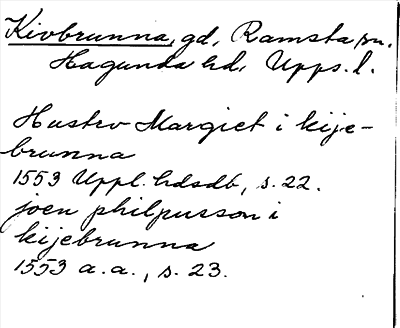 Kivbrunna, gd, Ramsta sn.
Hagunda hd, Upps. l.
Hustrv Margiet i kije-
brunna
1553 Uppl. hdsdb, s. 22.
joen philpusson i
kijebrunna
1553 a.a., s. 23.